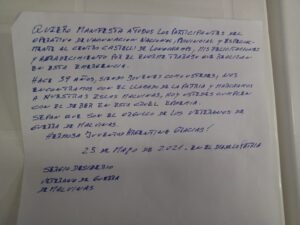 QUIERO MANIFESTAR A TODOS LOS PARTICIPANTES DEL
OPERATIVO DE VACUNACION NACIONAL, PROVINCIAL Y ESPECIAL-
MENTE AL CENTRO CASTELLI DE LOMAHERMOSA, MIS FELICITACIONES
Y AGRADECIMIENTO POR EL ENORME TRABAJO QUE REALIZAN
EN ESTA EMERGENCIA.
HACE 39 AÑOS, SIENDO JOVENES COMO USTEDES, NOS
ENCONTRAMOS CON EL LLAMADO DE LA PATRIA Y
A NUESTRAS ISLAS MALVINAS, HOY USTEDES CUMPLEN
CON EL DEBER EN ESTA CRUEL PANDEMIA.
SEPAN QUE SON EL ORGULLO DE LOS VETERANOS DE
GUERRA DE MALVINAS.
HERMOSA JUVENTUD ARGENTINA GRACIAS!
25 DE MAYO DE 2021. EN EL DIA DE LA PATRIA
SERGIO DESIDERIO
VETERANO DE GUERRA
DE MALVINAS